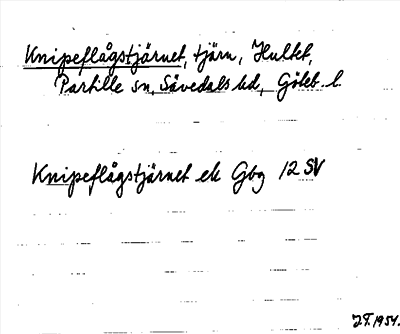 Knipeflågstjärnet, tjärn, Hultet,
Partille sn, Sävedals hd, Göteb. l.
Knipeflågstjärnet ek Gbg 12 SV
1954.